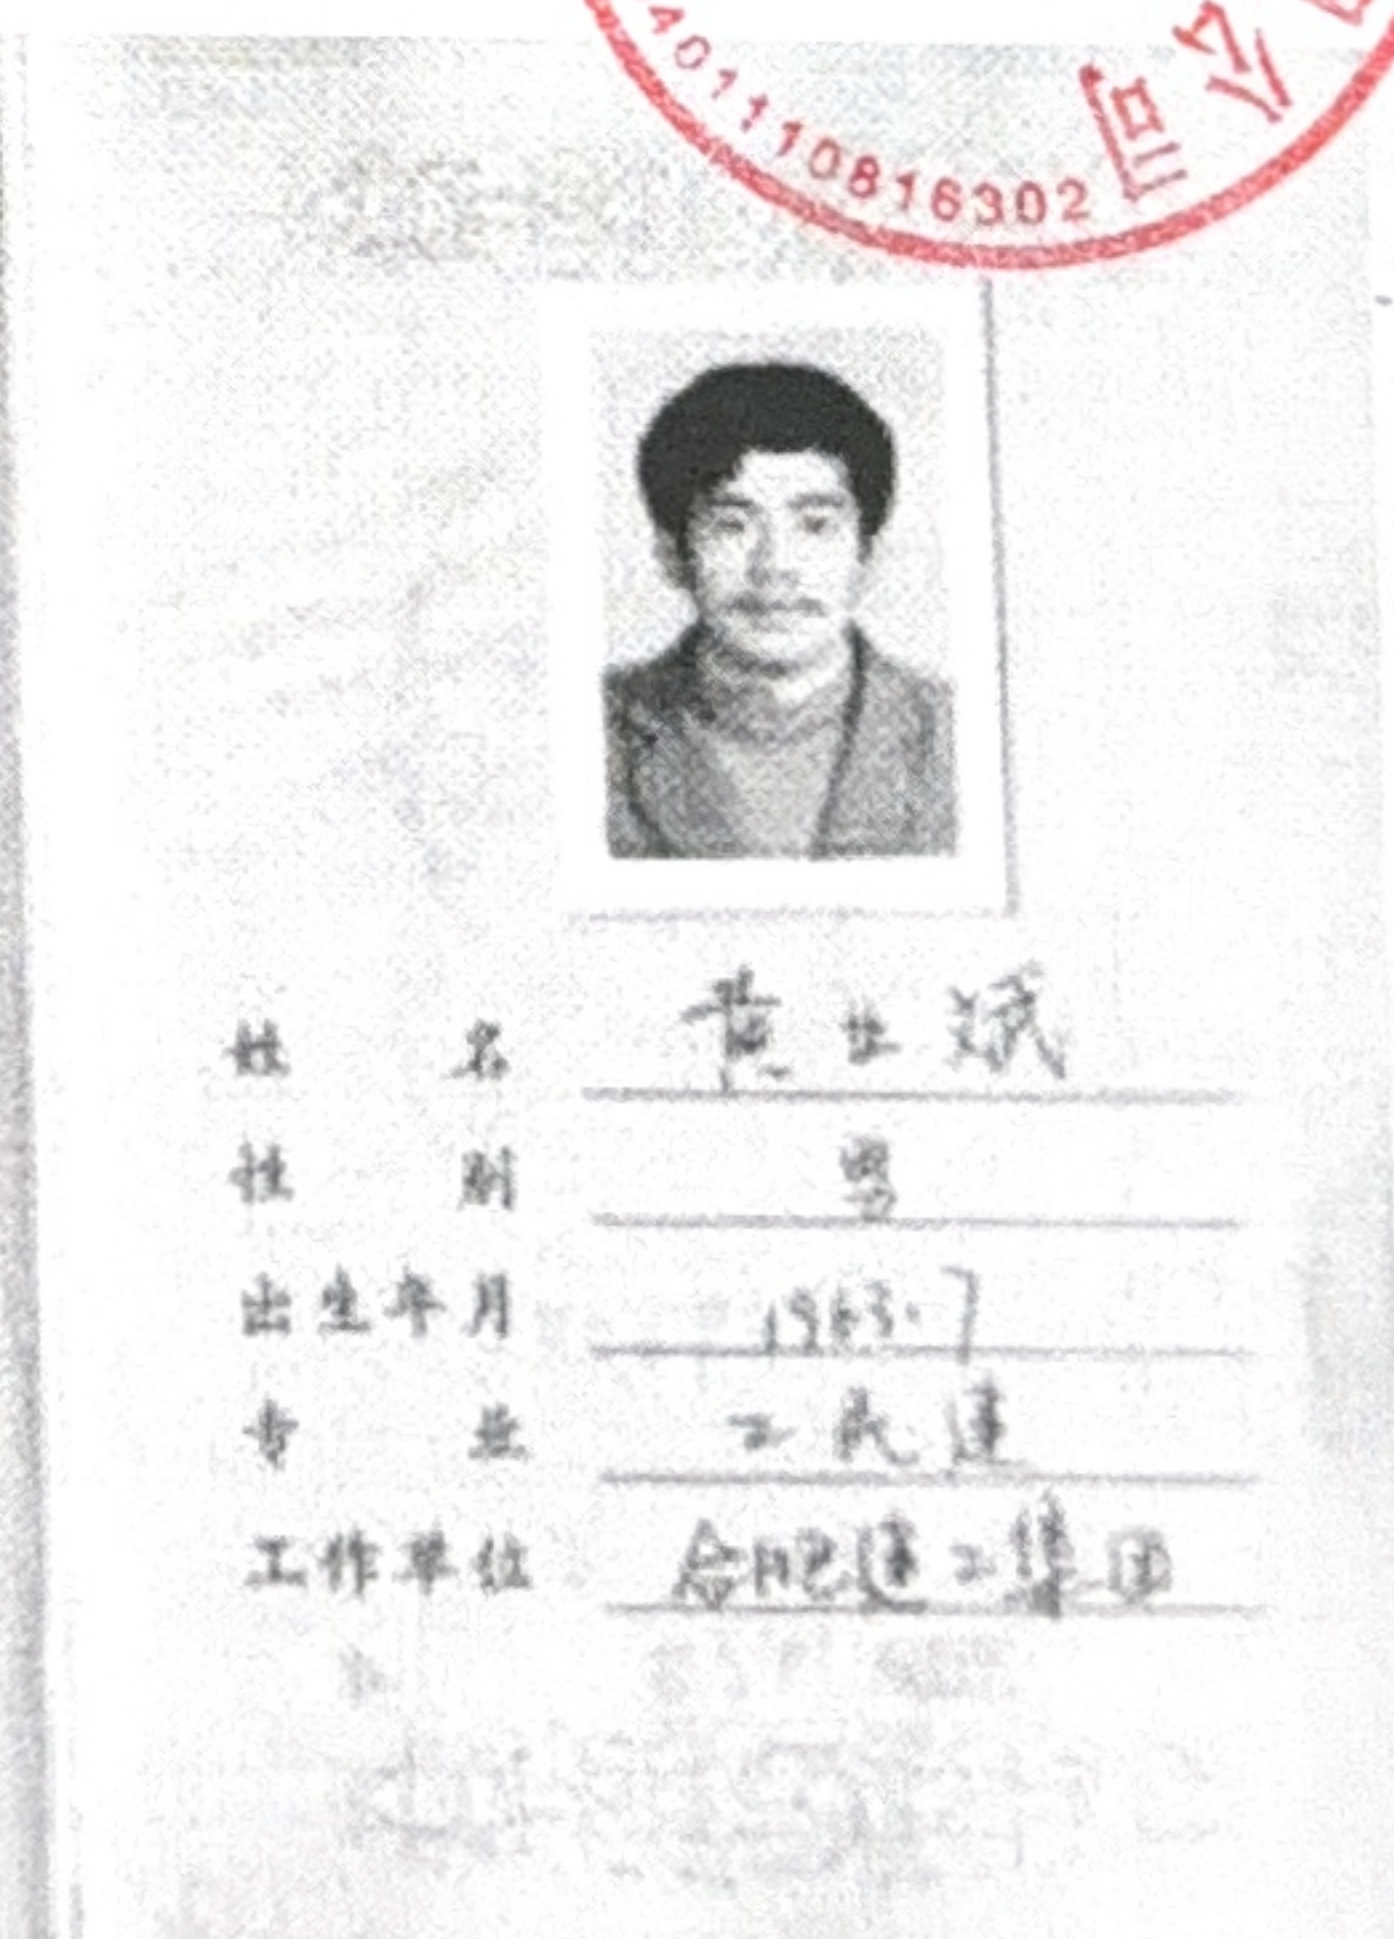 401110816302
司公
姓 名 黄世斌
性 别 男
出生年月 1963.7
专 业 工民建
工作单位 合肥建工集团